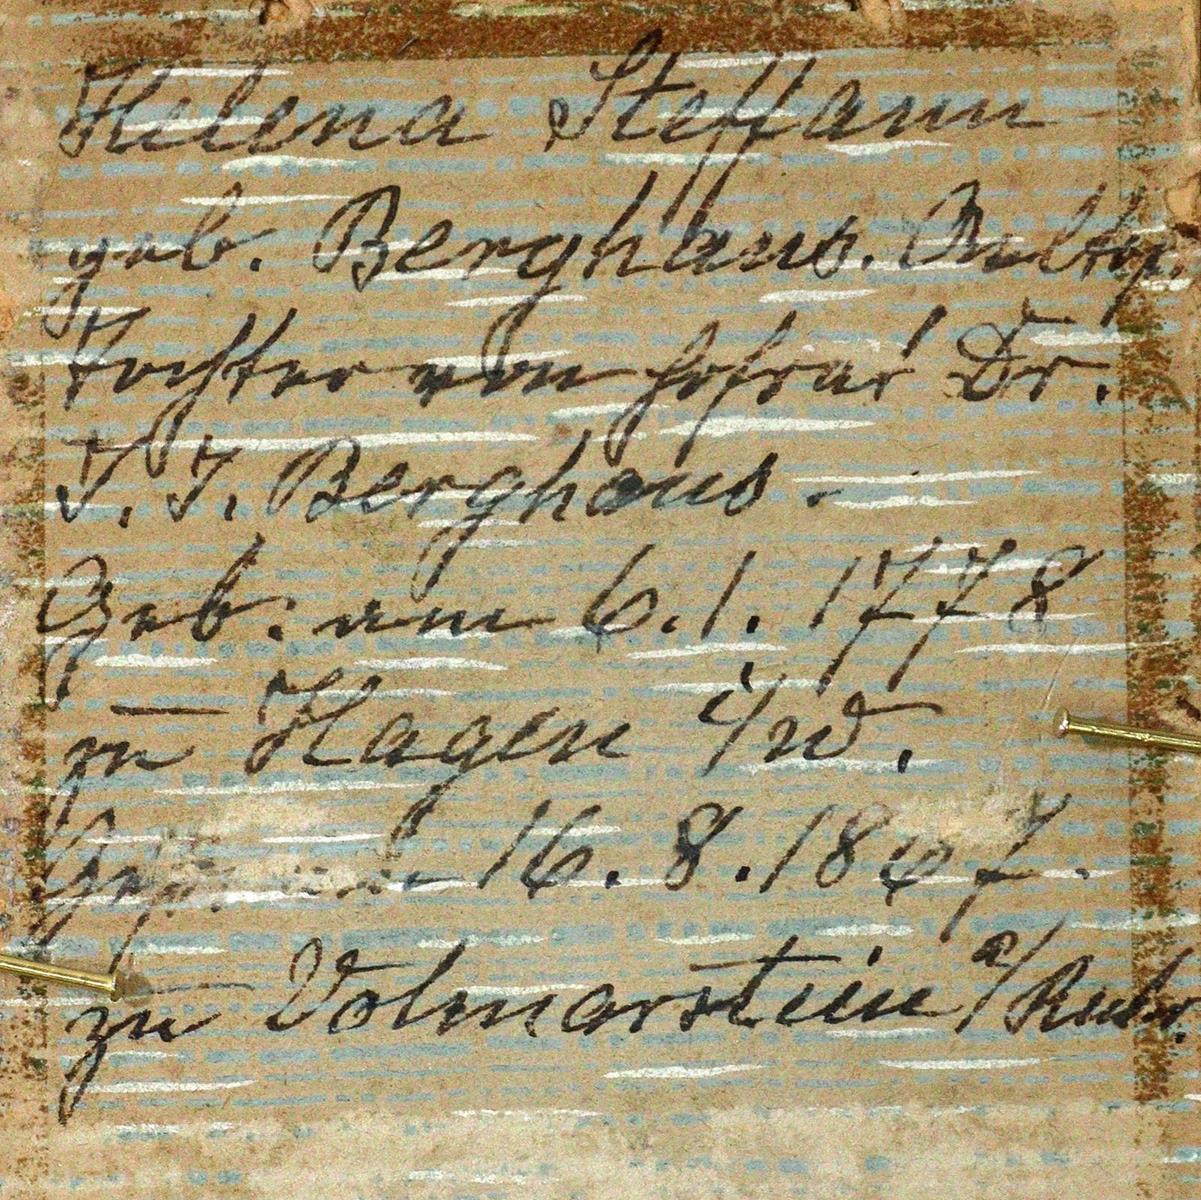 Helena Steffann
geb. Berghaus. Ält.
Tochter von Hofrat Dr.
J. J. Berghaus.
Geb: am 6.1.1778
zu Hagen i/W.
Gest. 16.8.1847.
zu Volmarstein a/Ruhr.